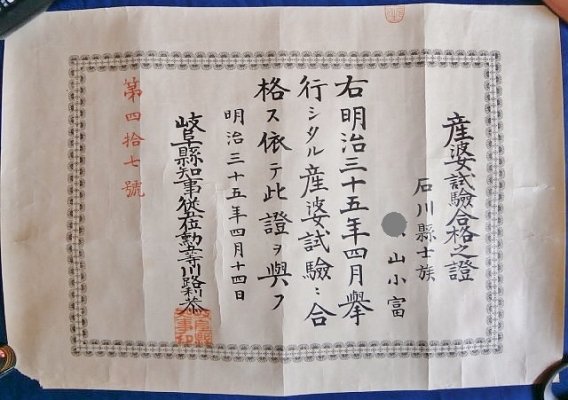 産婆試驗合格之證
石川縣士族
山小富
右明治三十五年四月擧
行シタル産婆試驗ニ合
格ス依テ此證ヲ與フ
明治三十五年四月十四日
岐阜縣知事從四位勳三等川路利恭
第四拾七號